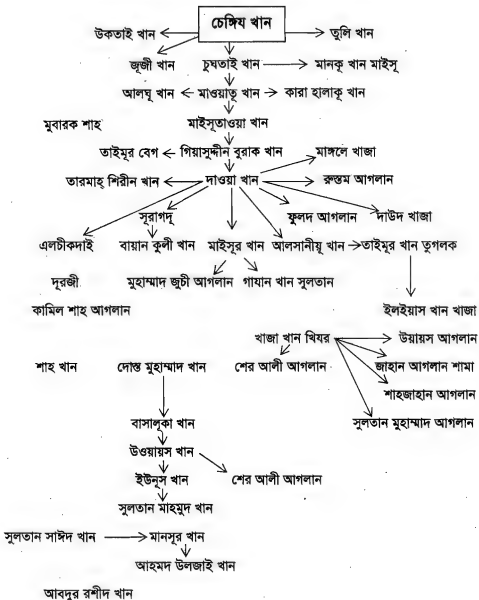 চেঙ্গিয খান
উকতাই খান তুলি খান
জূজী খান চুঘতাই খান মানকূ খান মাইসূ
আলঘূ খান মাওয়াতূ খান কারা হালাকূ খান
মুবারক শাহ মাইসূতাওয়া খান
তাইমূর বেগ গিয়াসুদ্দীন বুরাক খান মাঙ্গলে খাজা
তারমাহ্ শিরীন খান দাওয়া খান রুস্তম আগলান
সূরাগদূ ফুলদ আগলান দাউদ খাজা
এলচীকদাই বায়ান কুলী খান মাইসূর খান আলসানীয়ূ খান তাইমূর খান তুগলক
দূরজী মুহাম্মাদ জুচী আগলান গাযান খান সুলতান
কামিল শাহ আগলান ইলইয়াস খান খাজা
খাজা খান খিযর উয়ায়স আগলান
শাহ খান দোস্ত মুহাম্মাদ খান শের আলী আগলান জাহান আগলান শামা
শাহজাহান আগলান
সুলতান মুহাম্মাদ আগলান
বাসালূকা খান
উওয়ায়স খান
ইউনূস খান শের আলী আগলান
সুলতান মাহমুদ খান
সুলতান সাঈদ খান মানসূর খান
আহমদ উলজাই খান
আবদুর রশীদ খান